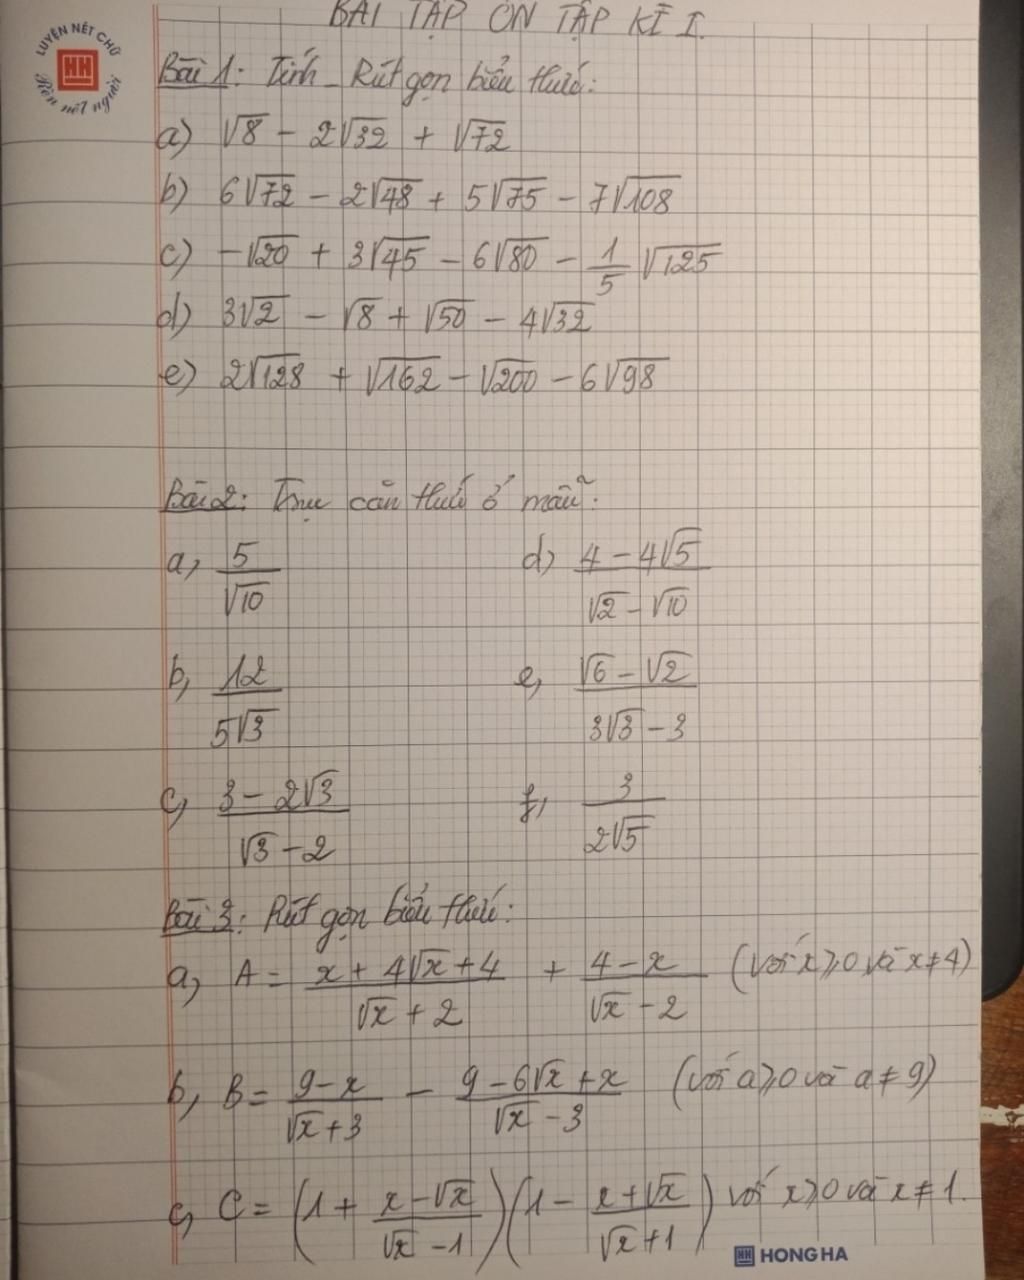 BÀI TẬP ÔN TẬP KÌ I.
LUYỆN NÉT CHỮ
HH
Rèn nết người
Bài 1: Tính - Rút gọn biểu thức:
a) √8 - 2√32 + √72
b) 6√72 - 2√48 + 5√75 - 7√108
c) -√20 + 3√45 - 6√80 - 1/5 √125
d) 3√2 - √8 + √50 - 4√32
e) 2√128 + √162 - √200 - 6√98
Bài 2: Trục căn thức ở mẫu:
a, 5/√10 d) (4 - 4√5)/(√2 - √10)
b, 12/(5√3) e, (√6 - √2)/(3√3 - 3)
c, (3 - 2√3)/(√3 - 2) f, 3/(2√5)
Bài 3: Rút gọn biểu thức:
a, A = (x + 4√x + 4)/(√x + 2) + (4 - x)/(√x - 2) (với x ⩾ 0 và x ≠ 4)
b, B = (9 - x)/(√x + 3) - (9 - 6√x + x)/(√x - 3) (với a ⩾ 0 và a ≠ 9)
c, C = (1 + (x - √x)/(√x - 1))(1 - (x + √x)/(√x + 1)) với x ⩾ 0 và x ≠ 1.
HH HONG HA